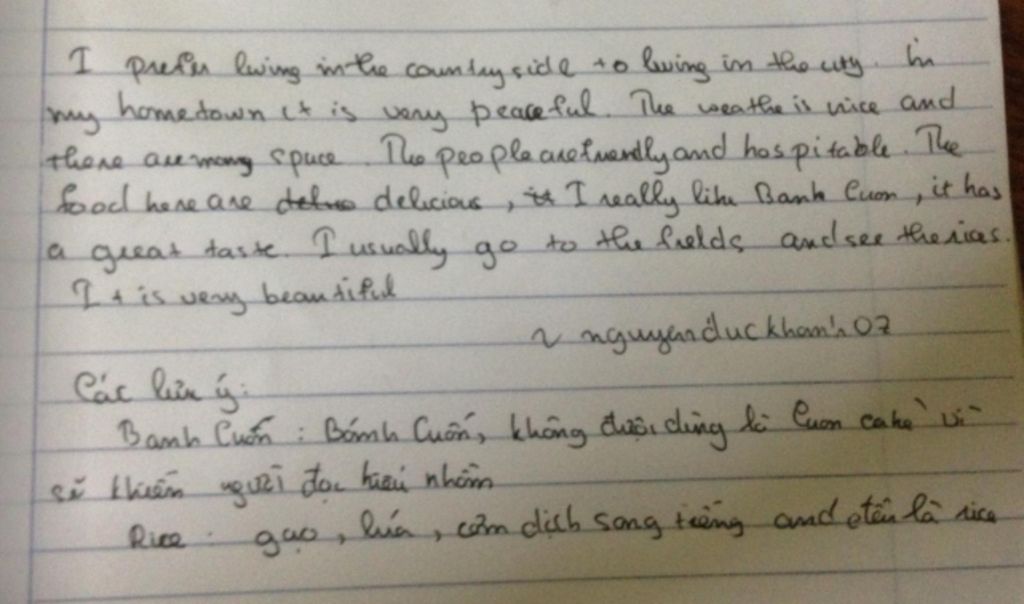 I prefer living in the countryside to living in the city. In
my hometown it is very peaceful. The weathe is nice and
there are many space. The people are friendly and hospitable. The
food here are delicious, I really like Banh Cuon, it has
a great taste. I usually go to the fields and see the rices.
It is very beautiful
~ nguyenduckhanh07
Các lưu ý:
Banh Cuốn : Bánh Cuốn, không được dùng là Cuon cake vì
sẽ khiến người đọc hiểu nhầm
Rice : gạo, lúa, cơm dịch sang tiếng and đều là rice